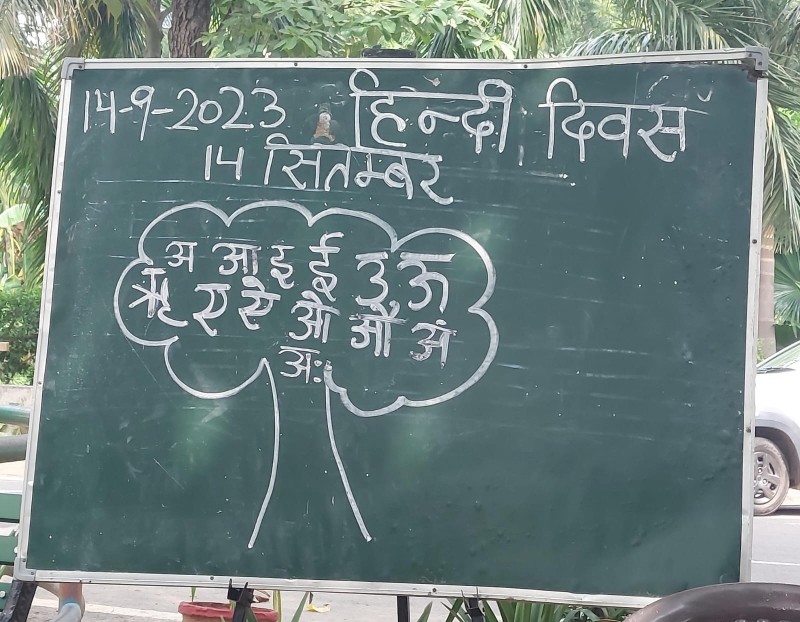 14-9-2023 हिन्दी दिवस
14 सितम्बर
अ आ इ ई उ ऊ
ऋ ए ऐ ओ औ अं
अः